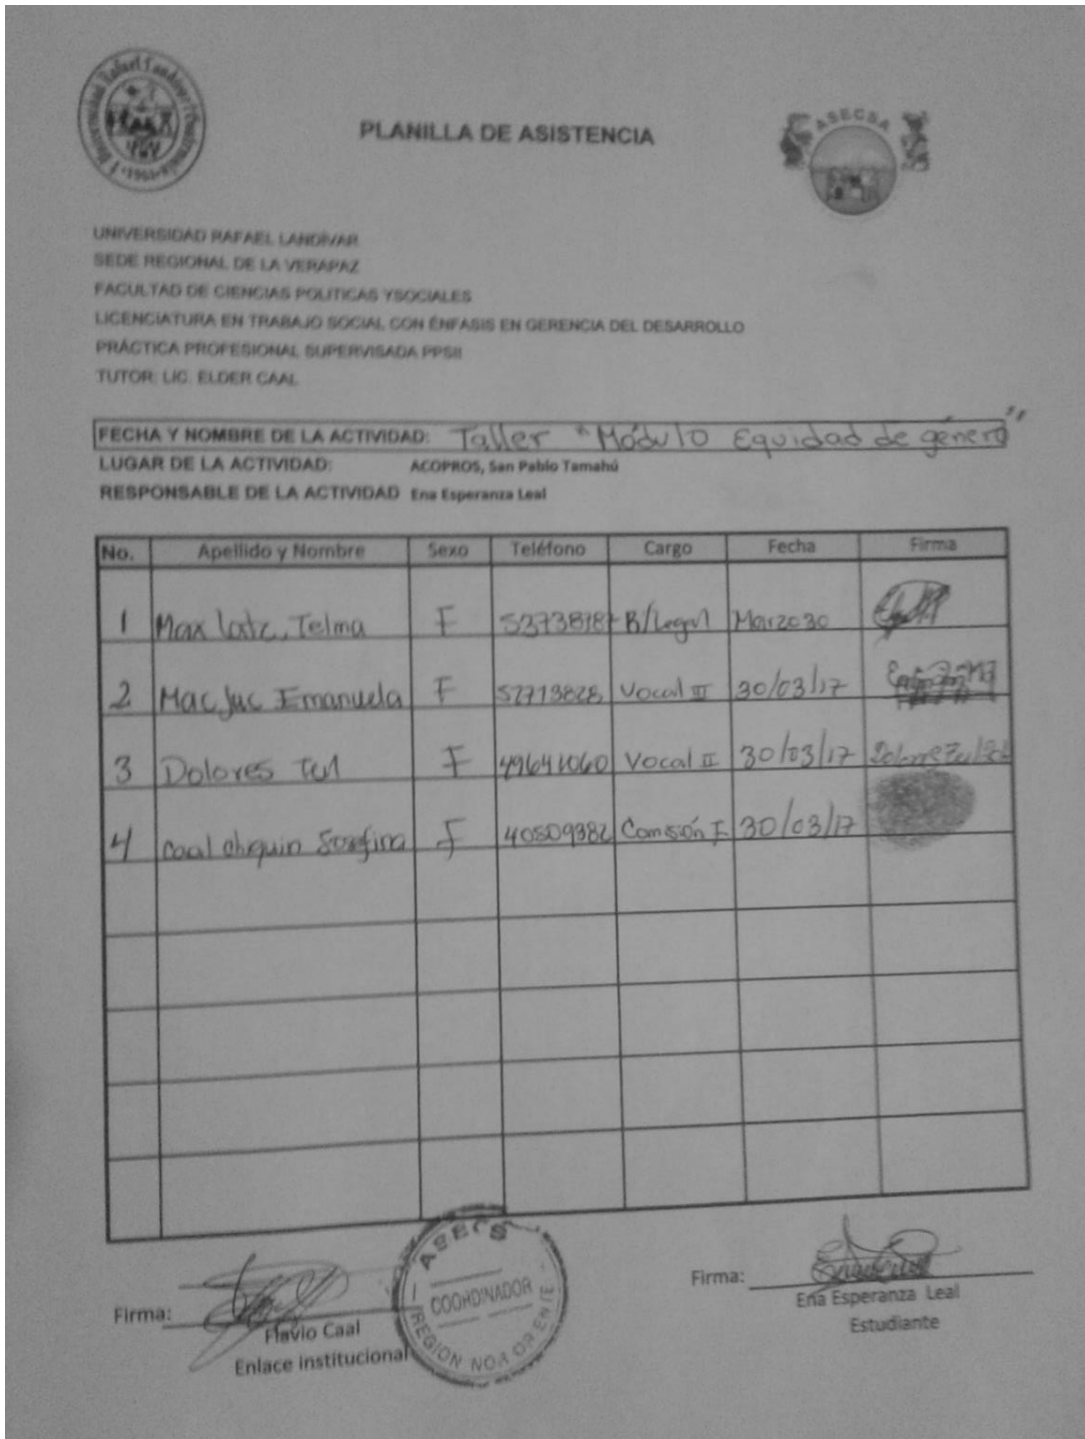 PLANILLA DE ASISTENCIA
ASECSA
UNIVERSIDAD RAFAEL LANDÍVAR
SEDE REGIONAL DE LA VERAPAZ
FACULTAD DE CIENCIAS POLITICAS YSOCIALES
LICENCIATURA EN TRABAJO SOCIAL CON ÉNFASIS EN GERENCIA DEL DESARROLLO
PRÁCTICA PROFESIONAL SUPERVISADA PPSII
TUTOR: LIC. ELDER CAAL
FECHA Y NOMBRE DE LA ACTIVIDAD: Taller "Módulo Equidad de género"
LUGAR DE LA ACTIVIDAD: ACOPROS, San Pablo Tamahú
RESPONSABLE DE LA ACTIVIDAD Ena Esperanza Leal
No. Apellido y Nombre Sexo Teléfono Cargo Fecha Firma
1 Max Telma F R/Legal Marzo 30
2 Mac Juc Emanuela F 52713828 Vocal III 30/03/17
3 Dolores F 49641060 Vocal II 30/03/17
4 Caal chiquin F 40509382 Comisión F 30/03/17
Firma:
Flavio Caal
Enlace institucional
ASECS
COORDINADOR
REGION NOR ORIENTE
Firma:
Ena Esperanza Leal
Estudiante